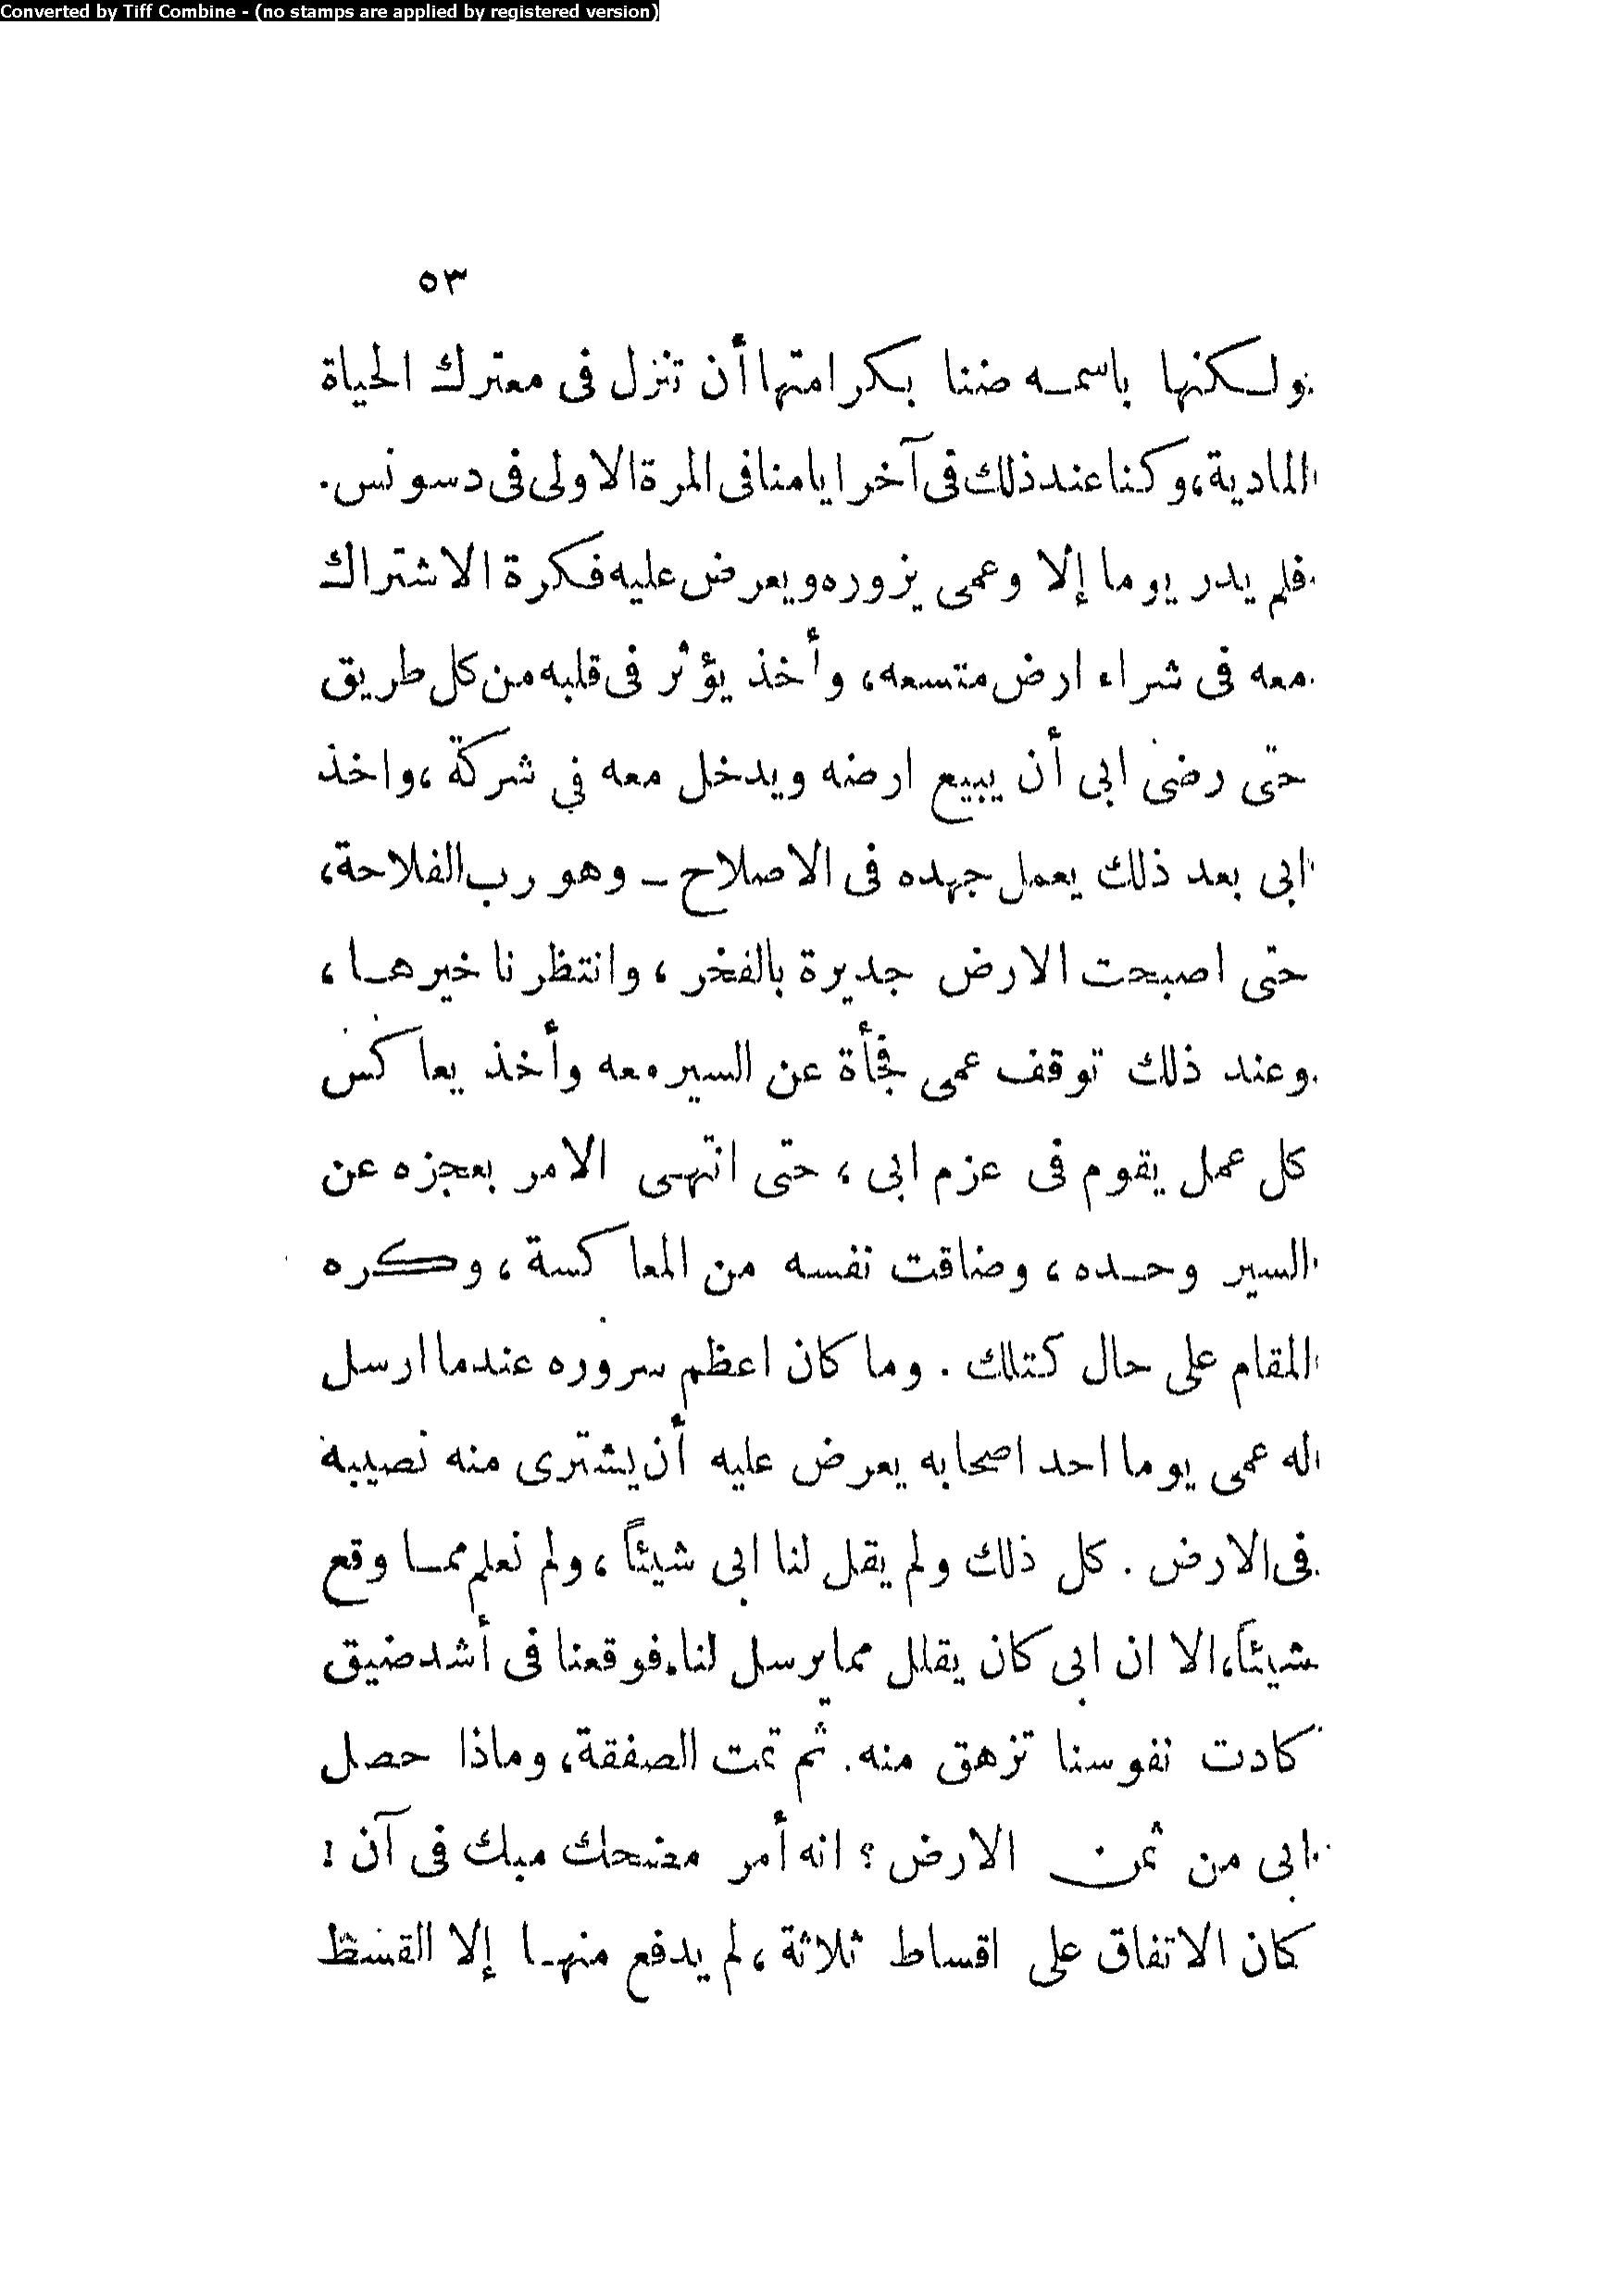 Converted by Tiff Combine - (no stamps are applied by registered version)
٥٣
ولكنها باسمه ضنا بكرامتها أن تنزل فى معترك الحياة
المادية، وكنا عند ذلك فى آخر ايامنا فى المرة الاولى فى دسونس.
فلم يدر يوما إلا وعمى يزوره ويعرض عليه فكرة الاشتراك
معه فى شراء ارض متسعه، وأخذ يؤثر فى قلبه من كل طريق
حتى رضى ابى أن يبيع ارضه ويدخل معه في شركة، واخذ
ابى بعد ذلك يعمل جهده فى الاصلاح – وهو رب الفلاحة،
حتى اصبحت الارض جديرة بالفخر، وانتظرنا خيرها،
وعند ذلك توقف عمى فجأة عن السير معه وأخذ يعاكس
كل عمل يقوم فى عزم ابى، حتى انتهى الامر بعجزه عن
السير وحده، وضاقت نفسه من المعاكسة، وكره
المقام على حال كتلك. وما كان اعظم سروره عندما ارسل
له عمى يوما احد اصحابه يعرض عليه أن يشترى منه نصيبه
فى الارض. كل ذلك ولم يقل لنا ابى شيئاً، ولم نعلم مما وقع
شيئاً، الا ان ابى كان يقلل مما يرسل لنا، فوقعنا فى أشد ضيق
كادت نفوسنا تزهق منه. ثم تمت الصفقة، وماذا حصل
ابى من ثمن الارض؟ انه أمر مضحك مبك فى آن!
كان الاتفاق على اقساط ثلاثة، لم يدفع منها إلا القسط